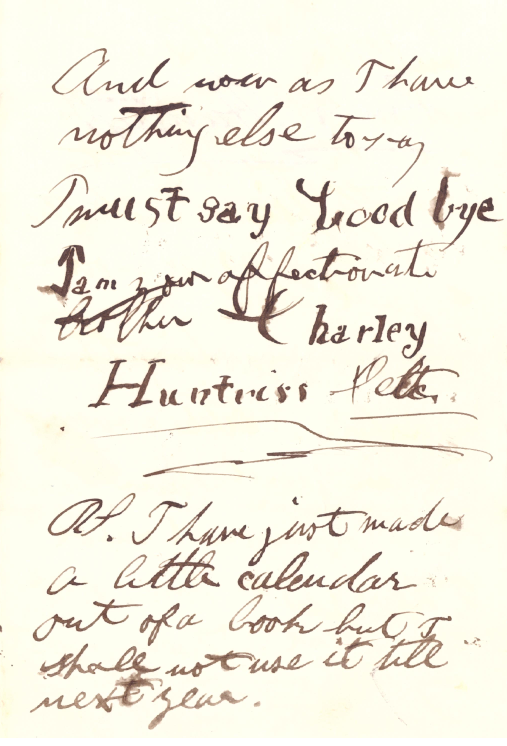 And now as I have
nothing else to say
I must say Good bye
I am your affectionate
brother Charley
Huntriss
PS. I have just made
a little calendar
out of a book but I
shall not use it till
next year.